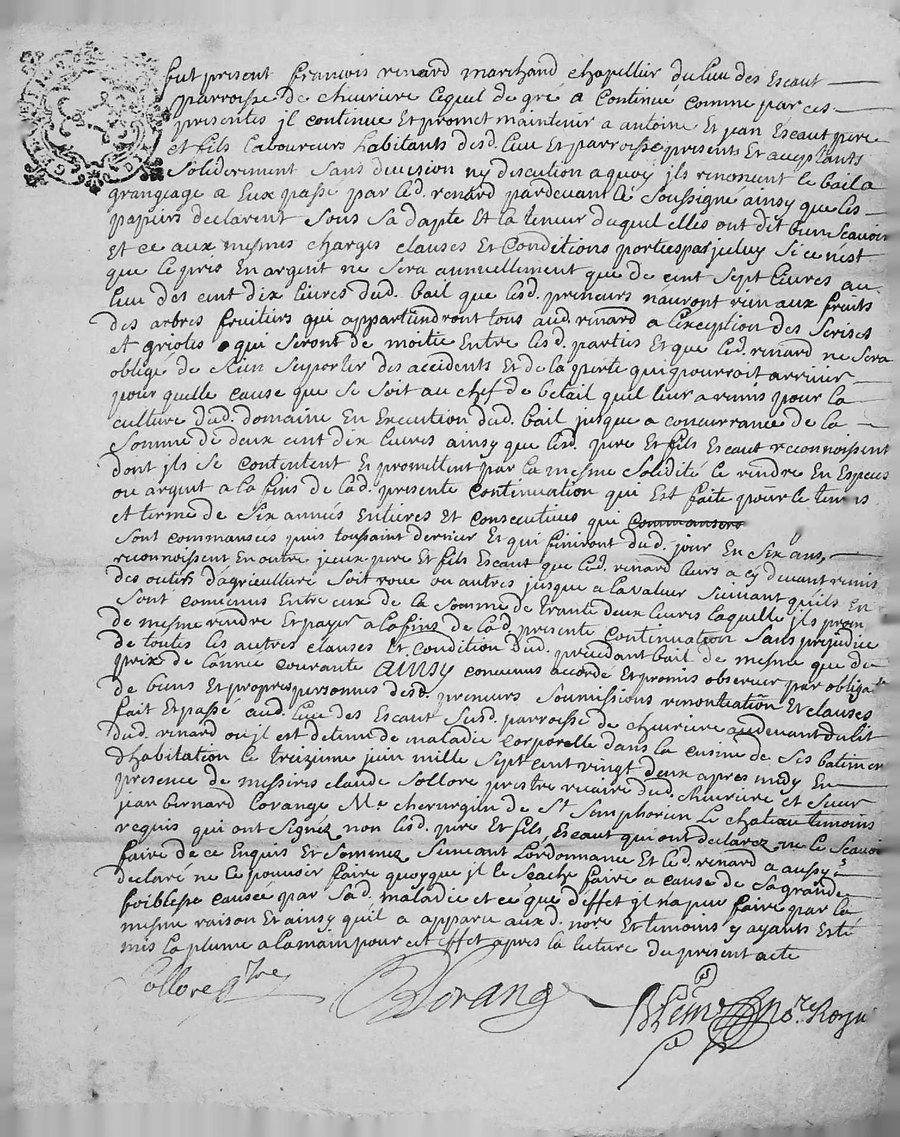 fut present francois renard marchand chapellier du lieu des Escaut
parroisse de chevriere lequel de gré a continué comme par ces
presentes jl continue Et promet maintenir a antoine Et jean Escaut pere
et fils laboureurs habitants desd. lieu Et parroisse presents Et aceptants
soliderment sans division ny discution aquoy jls renoncent le bail a
grangeage a Eux passé par led. renard pardevant le soussigné ainsy que les
parties declarent sous sa dapte Et la teneur duquel elles ont dit bien scavoir
Et ce aux mesmes charges clauses Et conditions portées par jceluy si ce nest
que le pris En argent ne sera annuellement que de cent sept livres au
lieu des cent dix livres dud. bail que lesd. preneurs nauront rien aux fruits
des arbres fruitiers qui appartiendront tous aud. renard a l'exception des serises
et griotes qui seront de moitié Entre lesd. parties Et que led. renard ne sera
obligé de rien suporter des accidents Et de la perte qui pourroit arriver
pour quelle cause que se soit au chef de betail quil leur a remis pour la
culture dud. domaine En Execution dud. bail jusque a concurrance de la
somme de deux cent dix livres ainsy que lesd. pere Et fils Escaut reconnoissent
dont jls se contentent Et promettent par la mesme solidité le rendre En Especes
ou argent a la fins de lad. presente continuation qui Est faite pour le temps
et terme de six années Entieres Et consecutives qui commansero
sont commancées puis toussaint dernier Et qui finiront dud. jour En six ans,
reconnoissent En outre jceux pere Et fils Escaut que led. renard leurs a cy devant remis
des outils d'agriculture soit roue ou autres jusque a la valeur suivant quils En
sont convenus Entre eux de la somme de trante deux livres laquelle jls prom
de mesme rendre Et payer a la fins de lad. presente continuation sans prejudice
de toutes les autres clauses Et condition dud. precedant bail de mesme que du
prix de lannée courante AINSY convenus accordé Et promis observer par obliga.
de biens Et propres personnes desd. preneurs soumissions renontiation Et clauses
fait Et passé aud. lieu des Escaut susd. parroisse de chevriere audevant du lit
dud. renard ou jl est detenu de maladie corporelle dans la cuisine de ses batiment
dhabitation le treizieme juin mille sept cent vingt deux apres midy En
presence de messires claude Sollore prestre vicaire dud. chevriere et sieur
jean bernard Lorange Me. cherurgien de St. Simphorien le chateau temoins
requis qui ont signéz non lesd. pere Et fils Escaut qui ont declarez ne le scavoir
faire de ce Enquis Et sommez suivant Lordonnance Et led. renard a aussy
declaré ne le pouvoir faire quoyque jl le scache faire a cause de sa grande
foiblesse causée par sad. maladie et ce que d'effet jl na pu faire par la
mesme raison Et ainsy quil a apparu aux d. nore. Et temoins y ayants Esté
mis la plume a la main pour cet effet apres la lecture du present acte
Sollore ptre BLorange nore. Royal